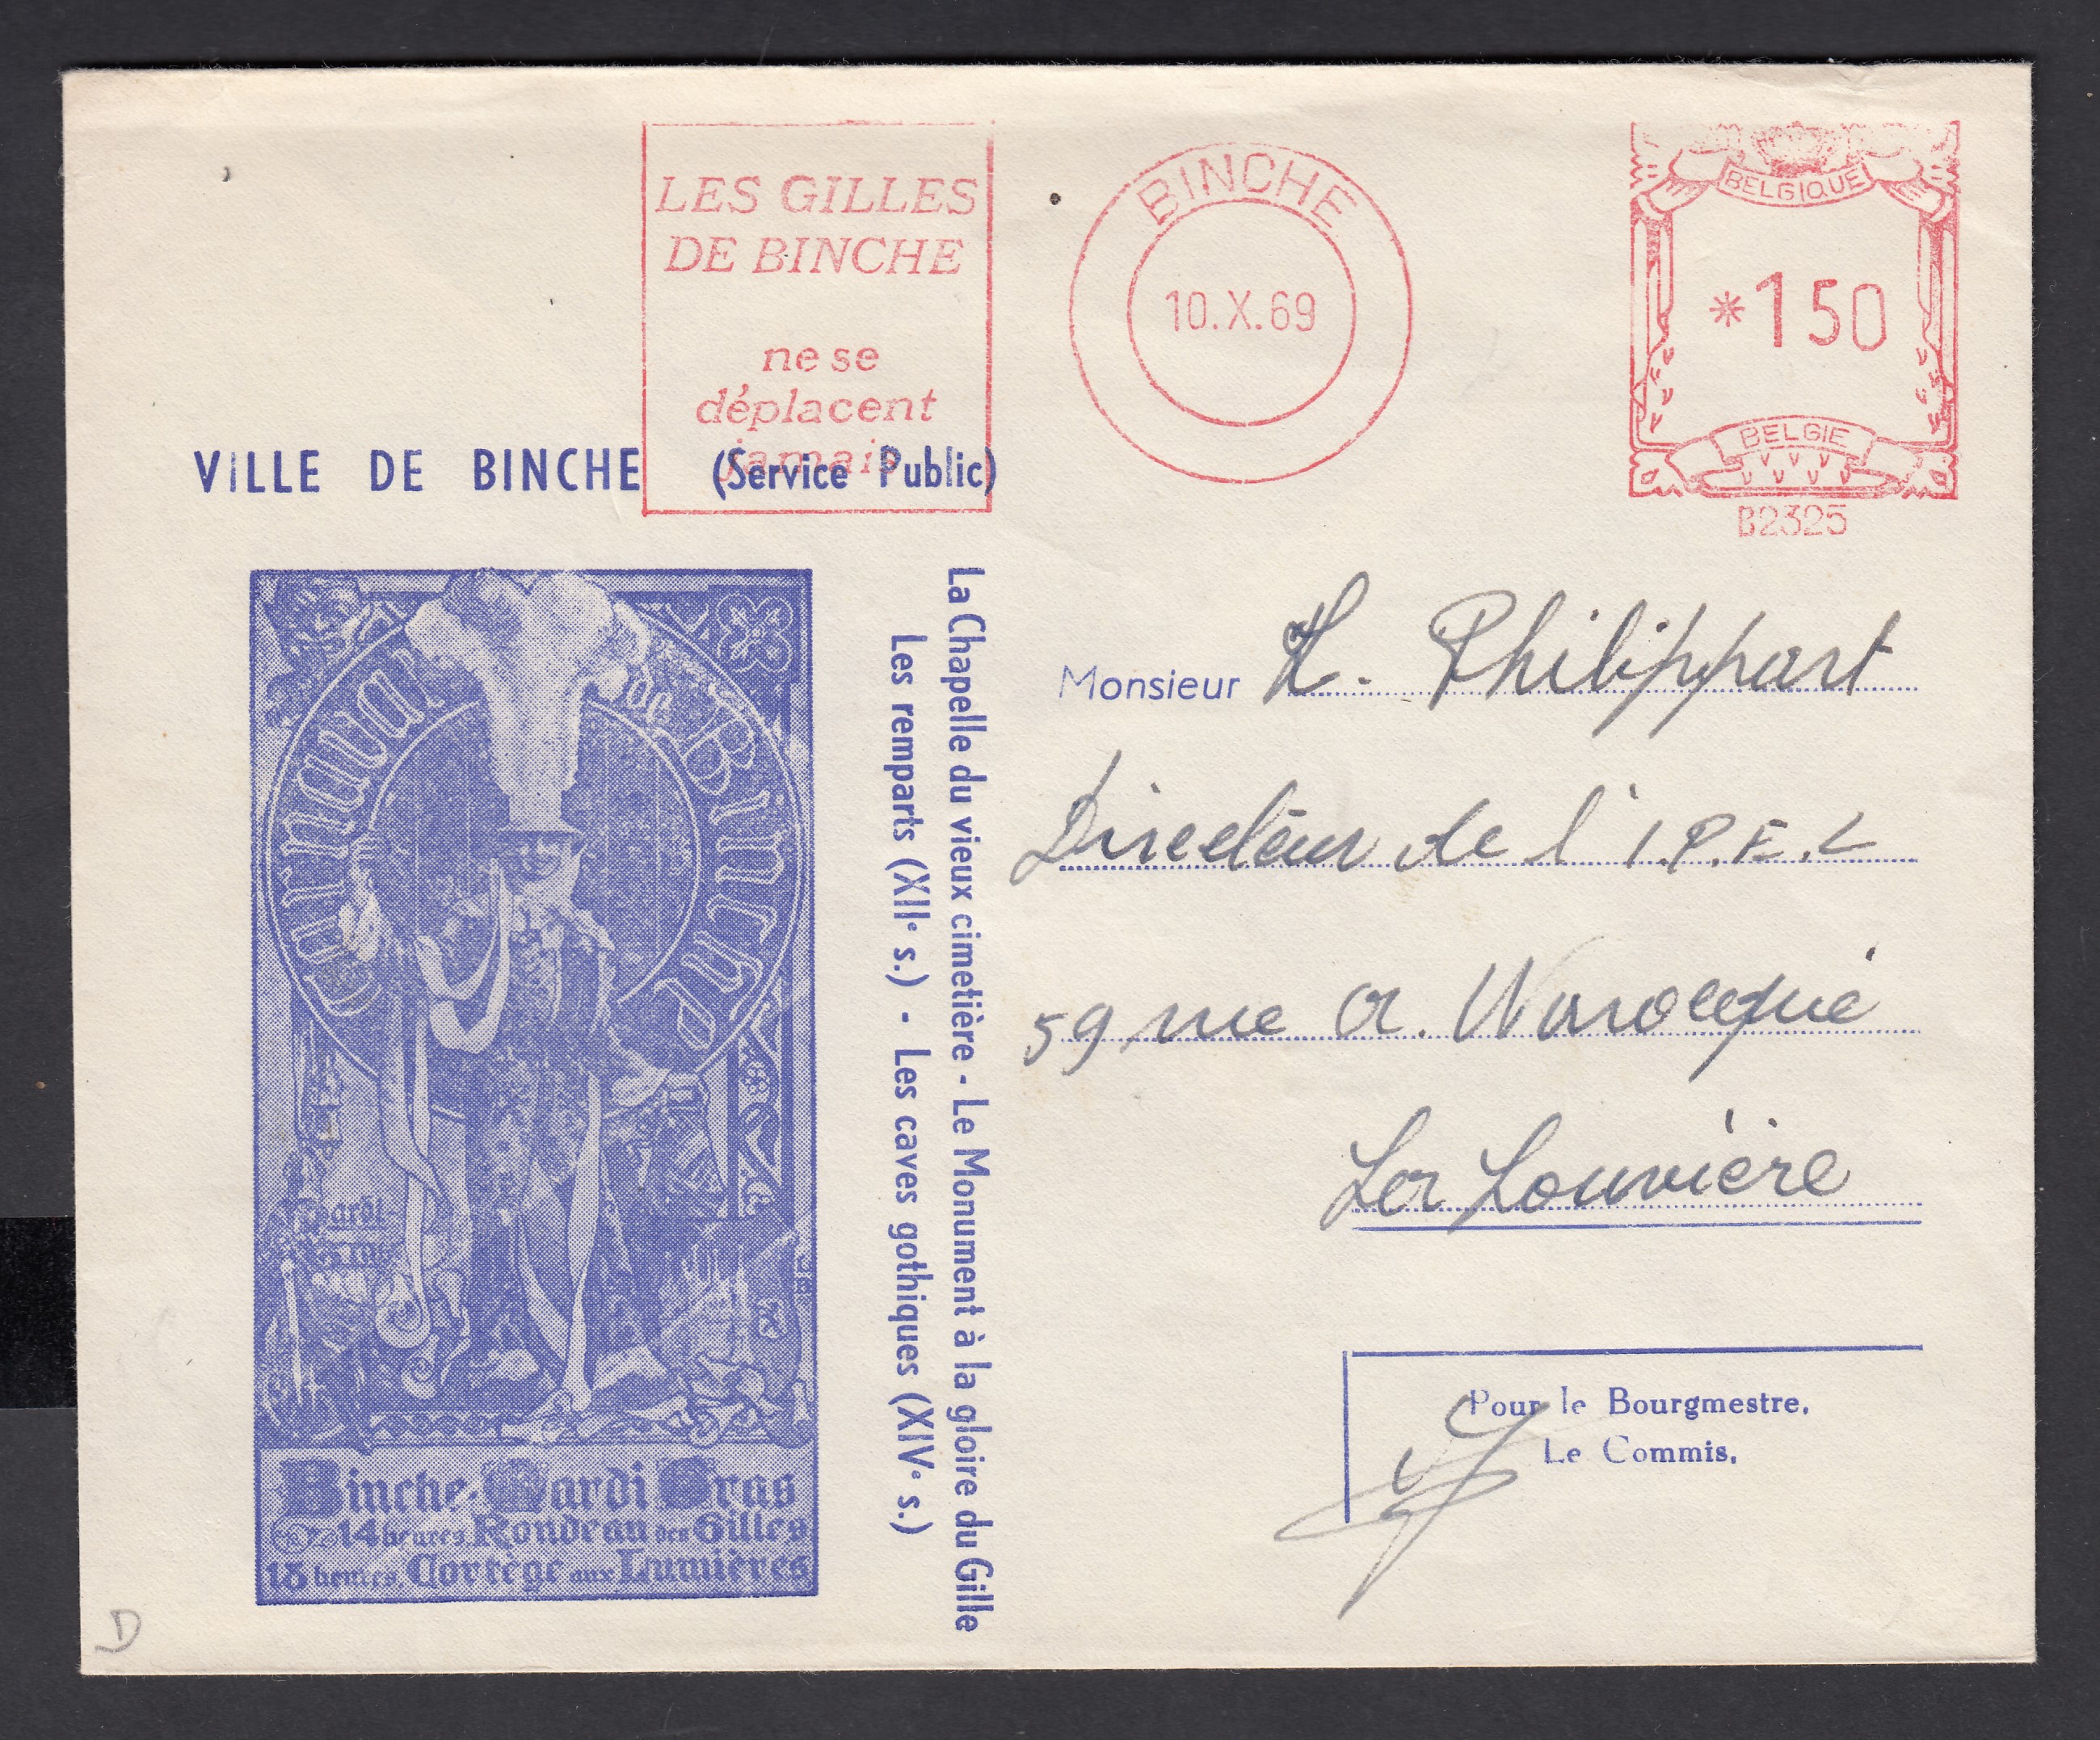 LES GILLES
DE BINCHE
ne se
déplacent
jamais
BINCHE
10.X.69
BELGIQUE
*150
BELGIE
B2325
VILLE DE BINCHE (Service Public)
Carnaval de Binche
Mardi
Binche-Mardi Gras
14 heures, Rondeau des Gilles
heures, Cortège aux Lumières
La Chapelle du vieux cimetière - Le Monument à la gloire du Gille
Les remparts (XIIe s.) - Les caves gothiques (XIVe s.)
Monsieur H. Philippart
Directeur de l'I.P.E.L
59 rue A. Warocqué
La Louvière
Pour le Bourgmestre,
Le Commis,
D